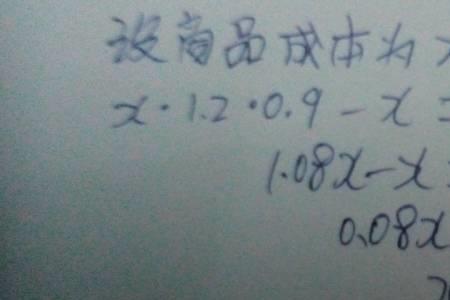 设商品成本为x
x·1.2·0.9-x=
1.08x-x=
0.08x